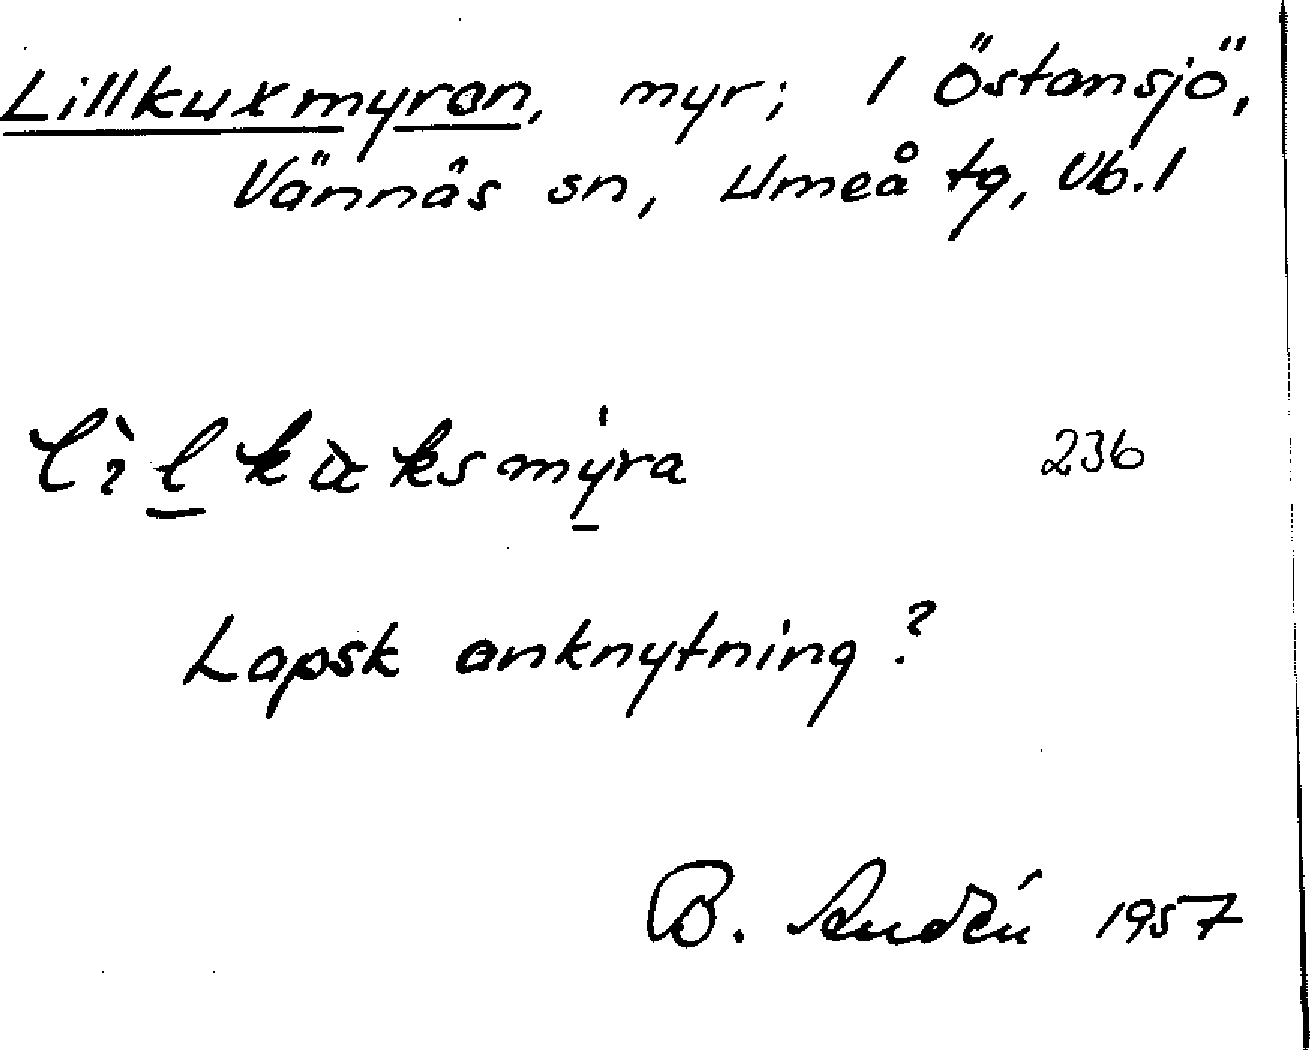 Lillkuxmyran, myr; / Östansjö,
Vännäs sn, Umeå tg, Vb./
lìlkʉksmyra 236
Lapsk anknytning?
B. 1957